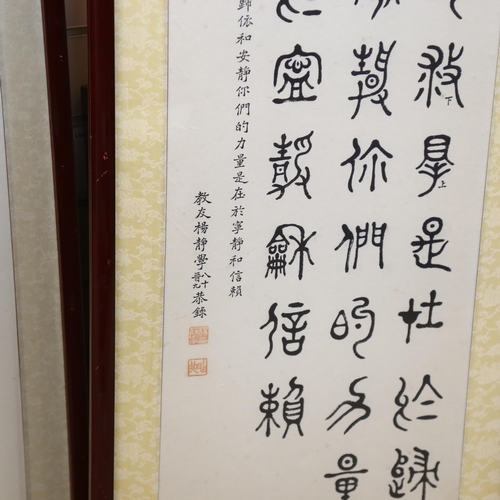 救下得上是在於歸
靜你們的力量
於寧靜和信賴
歸依和安靜你們的力量是在於寧靜和信賴
教友楊靜學八十晉九恭錄